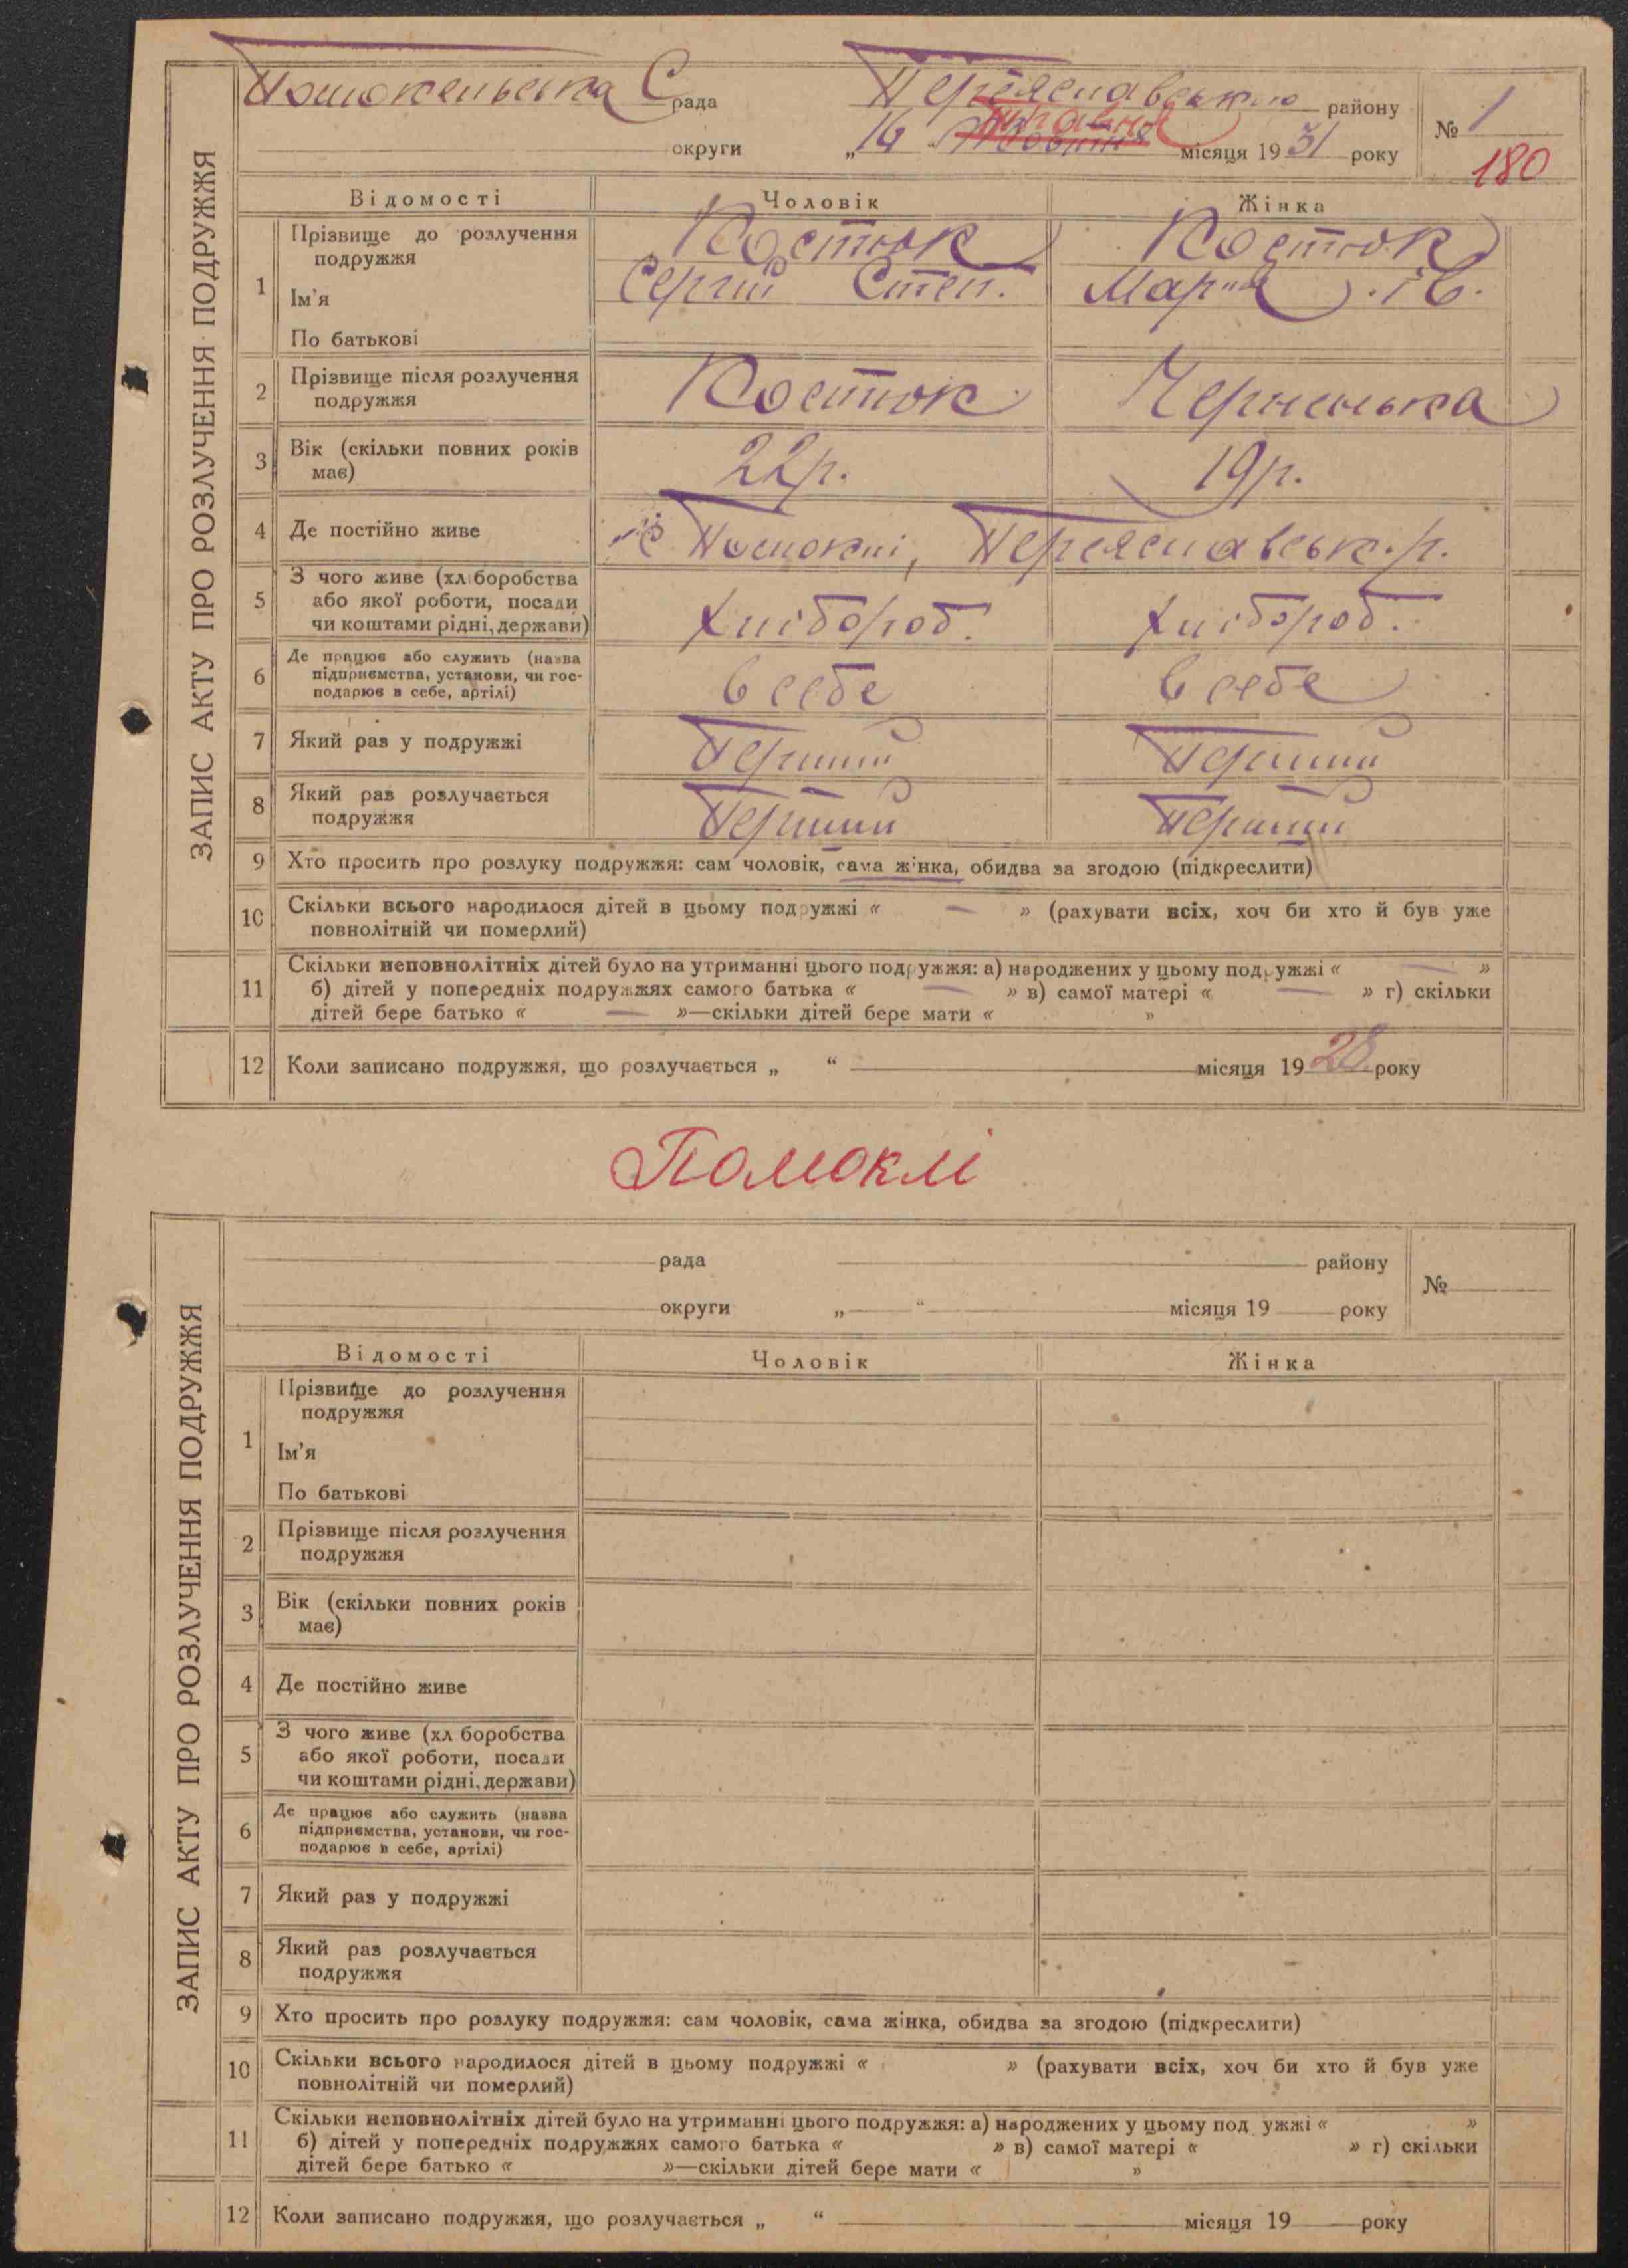 Помокельська С рада Переяславського району
округи „16 травня місяця 1931 року
№ 1
180
ЗАПИС АКТУ ПРО РОЗЛУЧЕННЯ ПОДРУЖЖЯ
Відомості Чоловік Жінка
1 Прізвище до розлучення подружжя Костюк Костюк
Ім'я Сергій Степ. Мария Ів.
По батькові
2 Прізвище після розлучення подружжя Костюк Черненька
3 Вік (скільки повних років має) 22 р. 19 р.
4 Де постійно живе с Помоклі, Переяславськ. р.
5 З чого живе (хліборобства
або якої роботи, посади
чи коштами рідні, держави) Хлібороб. Хлібороб.
6 Де працює або служить (назва
підприємства, установи, чи гос-
подарює в себе, артілі) в себе в себе
7 Який раз у подружжі Перший Перший
8 Який раз розлучається подружжя Перший Перший
9 Хто просить про розлуку подружжя: сам чоловік, сама жінка, обидва за згодою (підкреслити)
10 Скільки всього народилося дітей в цьому подружжі « — » (рахувати всіх, хоч би хто й був уже
повнолітній чи померлий)
11 Скільки неповнолітніх дітей було на утриманні цього подружжя: а) народжених у цьому подружжі « — »
б) дітей у попередніх подружжях самого батька « — » в) самої матері « — » г) скільки
дітей бере батько « — »—скільки дітей бере мати « »
12 Коли записано подружжя, що розлучається „ “ місяця 1928 року
Помоклі
рада району
округи „ “ місяця 19 року
№
ЗАПИС АКТУ ПРО РОЗЛУЧЕННЯ ПОДРУЖЖЯ
Відомості Чоловік Жінка
1 Прізвище до розлучення
подружжя
Ім'я
По батькові
2 Прізвище після розлучення
подружжя
3 Вік (скільки повних років
має)
4 Де постійно живе
5 З чого живе (хл боробства
або якої роботи, посади
чи коштами рідні, держави)
6 Де працює або служить (назва
підприємства, установи, чи гос-
подарює в себе, артілі)
7 Який раз у подружжі
8 Який раз розлучається
подружжя
9 Хто просить про розлуку подружжя: сам чоловік, сама жінка, обидва за згодою (підкреслити)
10 Скільки всього народилося дітей в цьому подружжі « » (рахувати всіх, хоч би хто й був уже
повнолітній чи померлий)
11 Скільки неповнолітніх дітей було на утриманні цього подружжя: а) народжених у цьому под ужжі « »
б) дітей у попередніх подружжях самого батька « » в) самої матері « » г) скільки
дітей бере батько « »—скільки дітей бере мати « »
12 Коли записано подружжя, що розлучається „ “ місяця 19 року